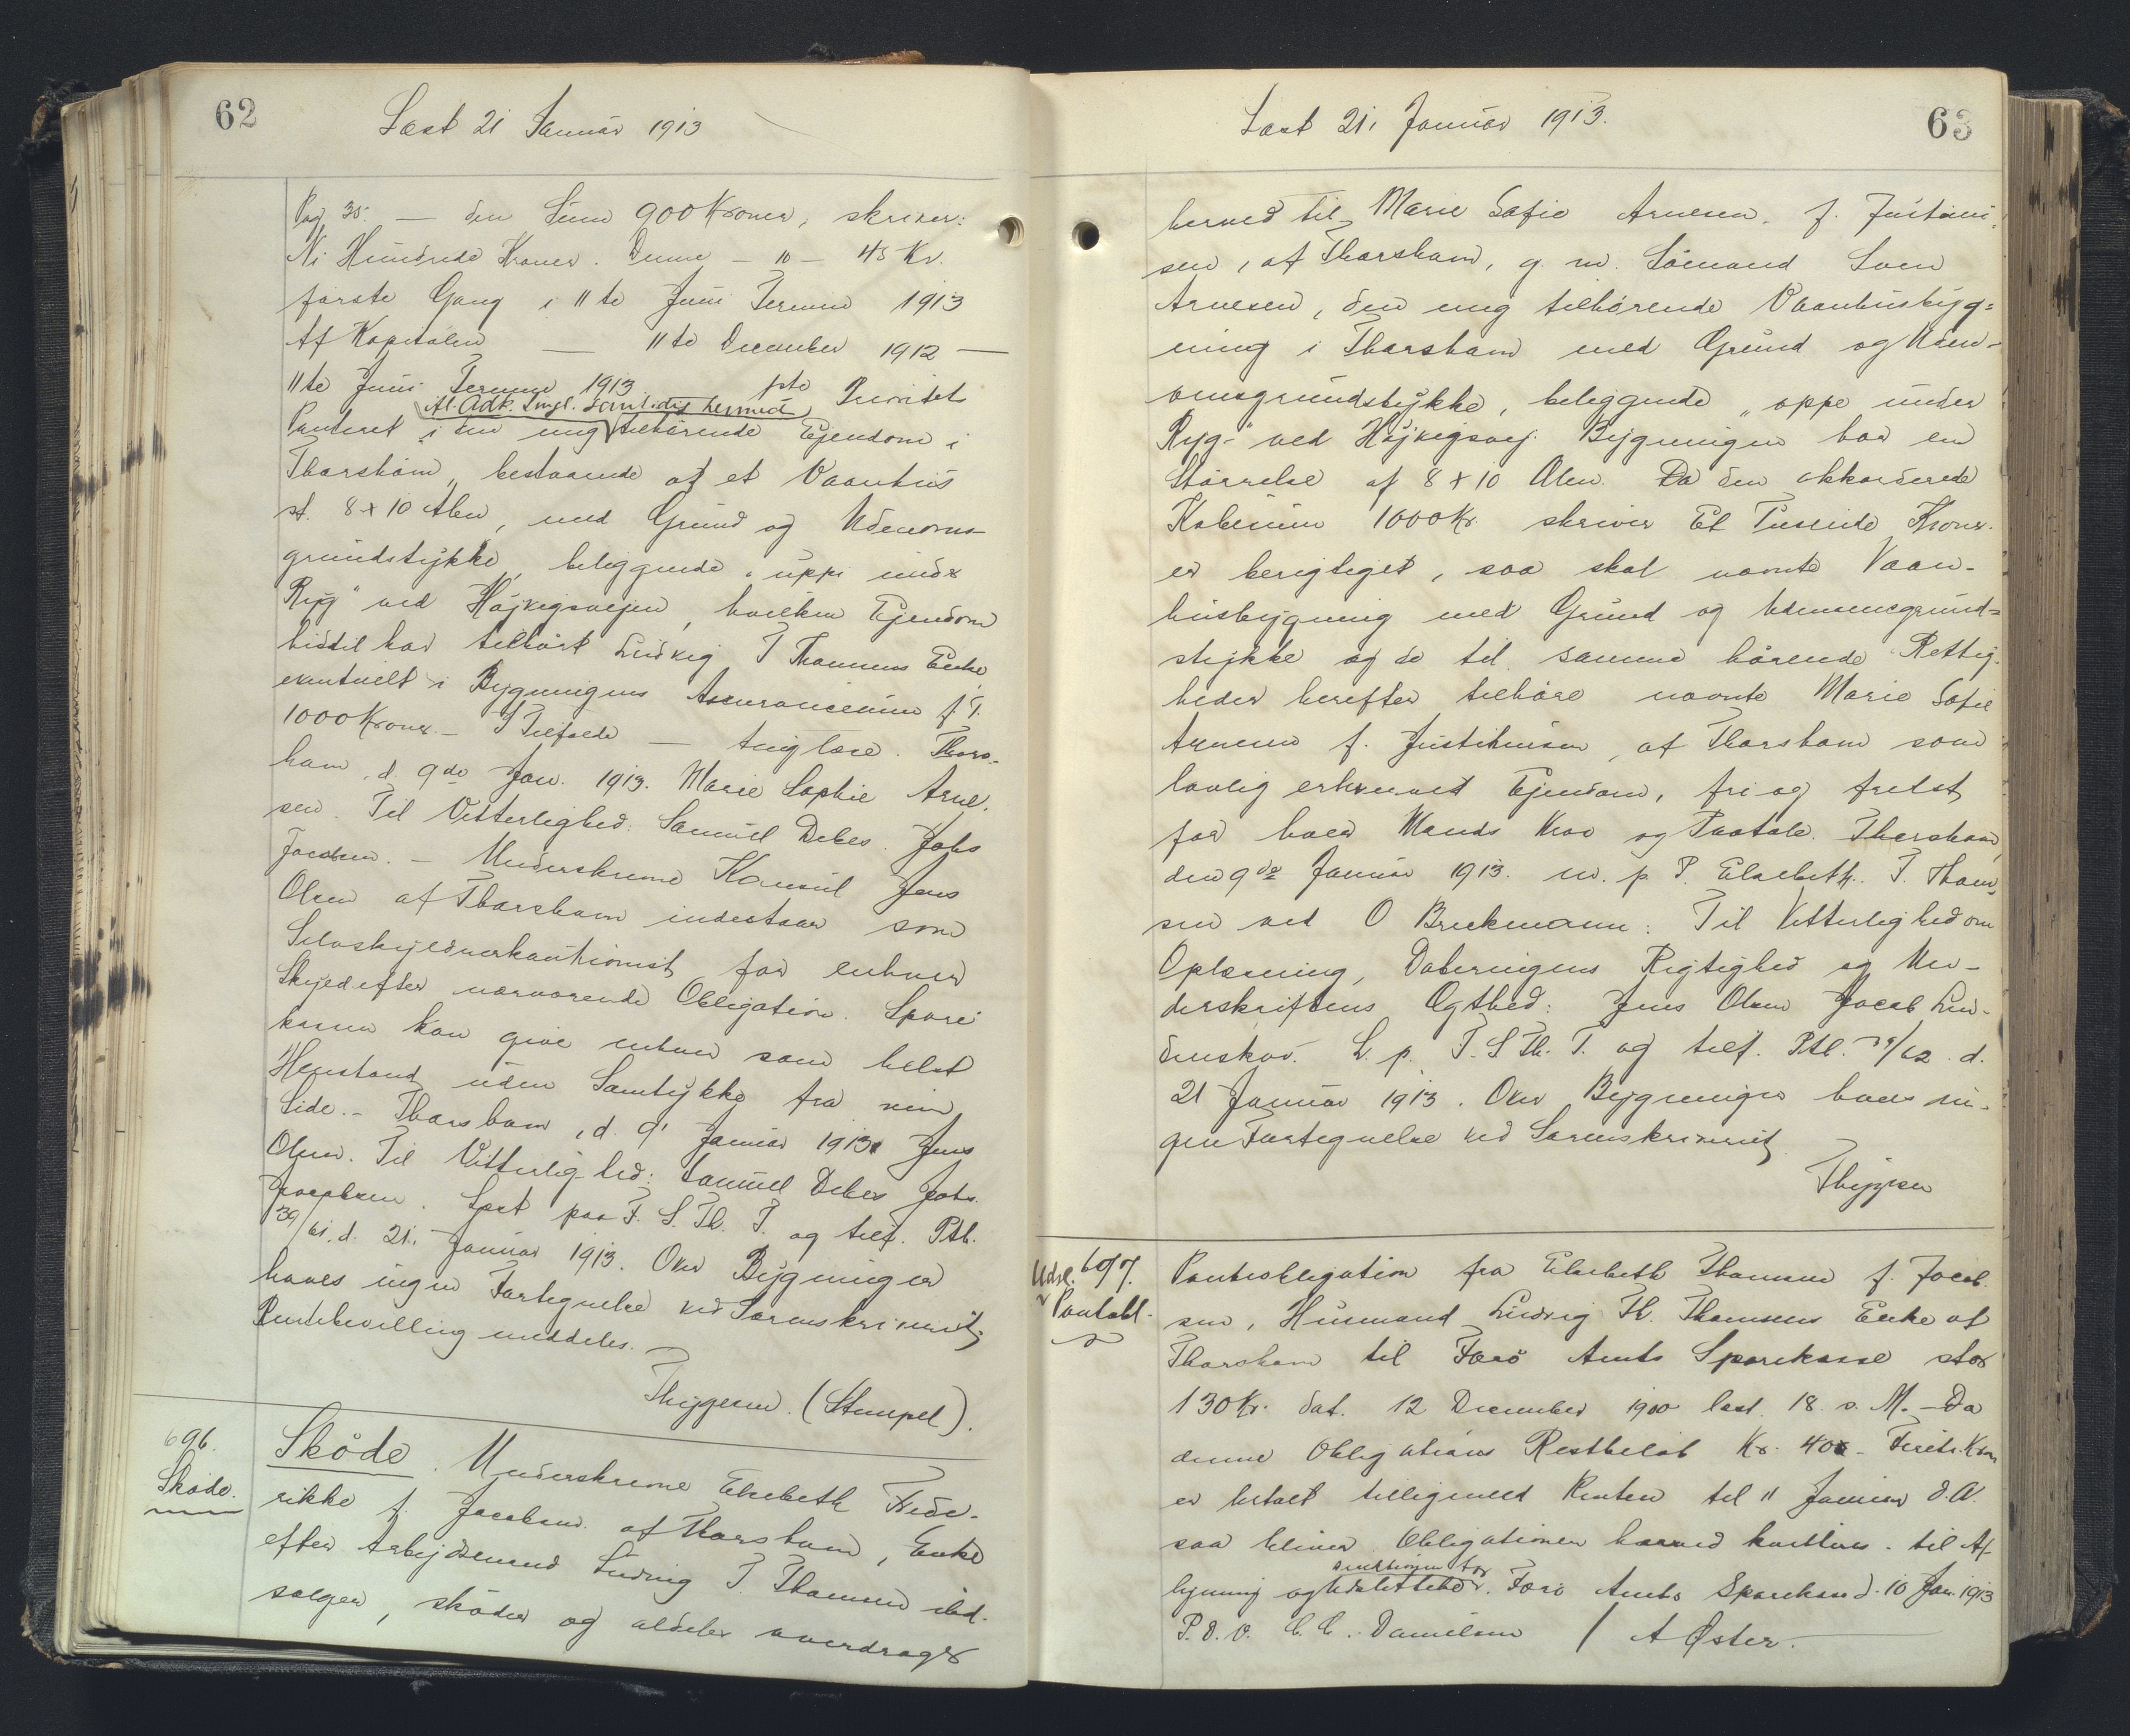 62
Læst 21 Januar 1913
Pag 35. — den Sum 900 Kroner, skriver:
Ni Hundrede Kroner. Denne — 10 — 45 Kr.
første Gang i 11te Juni Termin 1913
Af Kapitalen — 11te December 1912 —
11te Juni Termin 1913. 1ste Prioritet
Al. Adk. tingl. samtidig hermed
Panteret i den mig tilhørende Ejendom i
Thorshavn, bestaaende af et Vaanhus
st. 8 x 10 Alen, med Grund og Udenoms-
grundstykke, beliggende "uppi undir
Ryg" ved Højvigsvejen, hvilken Ejendom
hidtil har tilhørt Ludvig T Thomsens Enke,
eventuelt i Bygningens Assurancesum f. T.
1000 Kroner. — I Tilfælde — tinglæse. Thors-
havn, d. 9de Jan. 1913. Marie Sophie Arne-
sen. Til Vitterlighed: Samuel Debes. Johs
Jacobsen. — Underskrevne Konsul Jens
Olsen af Thorshavn indestaar som
Selvskyldnerkautionist for enhver
Skyld efter nærværende Obligation. Spare-
kassen kan give enhver som helst
Henstand uden Samtykke fra min
Side. — Thorshavn, d. 9' Januar 1913 Jens
Olsen. Til Vitterlighed: Samuel Debes Johs.
Jacobsen. Læst paa F. S. Th. T. og tilf. Ptb.
39/61. d. 21. Januar 1913. Over Bygninger
haves ingen Fortegnelse ved Sorenskriveriet;
Rentebevilling meddeles.
Thygesen. (Stempel).
696.
Skøde.
Skøde. Underskrevne Elsebeth Frede-
rikke f. Jacobsen af Thorshavn, Enke
efter Arbejdsmand Ludvig T. Thomsen ibd.
sælger, skøder og aldeles overdrager
63
Læst 21. Januar 1913.
herved til Marie Sofie Arnesen f. Justini-
sen, af Thorshavn, g. m. Sømand Sven
Arnesen, den mig tilhørende Vaanhusbyg-
ning i Thorshavn med Grund og Uden-
omsgrundstykke, beliggende "oppe under
Ryg-" ved Højvigsvej. Bygningen har en
Størrelse af 8 x 10 Alen. Da den akkorderede
Købesum 1000 Kr. skriver Et Tusinde Kroner
er berigtiget, saa skal nævnte Vaan-
husbygning med Grund og Udenomsgrund-
stykke og de til samme hørende Rettig-
heder herefter tilhøre nævnte Marie Sofie
Arnesen f. Justinusen, af Thorshavn som
lovlig erhvervet Ejendom, fri og frelst
for hver Mands Krav og Paatale. Thorshavn,
den 9de Januar 1913. m. p. P. Elsebeth F. Thom-
sen ved O Breckmann: Til Vitterlighed om
Oplæsning, Dateringens Rigtighed og Un-
derskriftens Ægthed: Jens Olsen Jacob Lin-
denskov. L. p. F. S Th. T. og tilf. Ptb. 39/62. d.
21 Januar 1913. Over Bygninger haves in-
gen Fortegnelse ved Sorenskriveriet
Thygesen
697.
Udsl.
Pantobl.
Pantobligation fra Elsebeth Thomsen f. Jacob-
sen, Husmand Ludvig Th. Thomsens Enke af
Thorshavn til Færø Amts Sparekasse stor
130 Kr. dat. 12 December 1900 læst 18. s. M. — Da
denne Obligations Restbeløb Kr. 40 — Fireti Kron
er betalt tilligemed Renten til 11 Januar d. A.
saa bliver Obligationen herved kvitteres til Af-
lysning og Udslettelse. Færø Amts Sparekasse d. 10 Jan. 1913
P. D. V. C. C. Danielsen / A Øster.